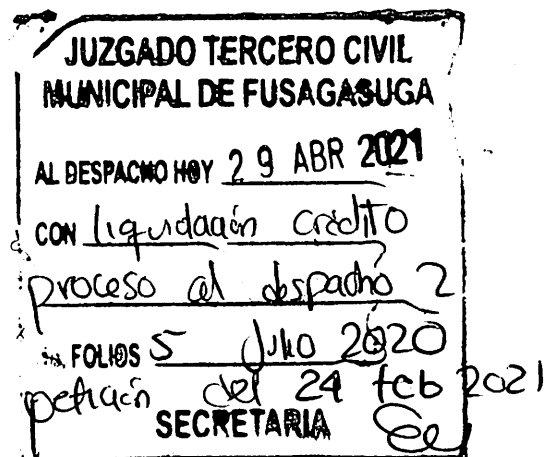 JUZGADO TERCERO CIVIL
MUNICIPAL DE FUSAGASUGA
AL DESPACHO HOY 29 ABR 2021
CON liquidación crédito
proceso al despacho 2
FOLIOS 5 Julio 2020
petición del 24 feb 2021
SECRETARIA